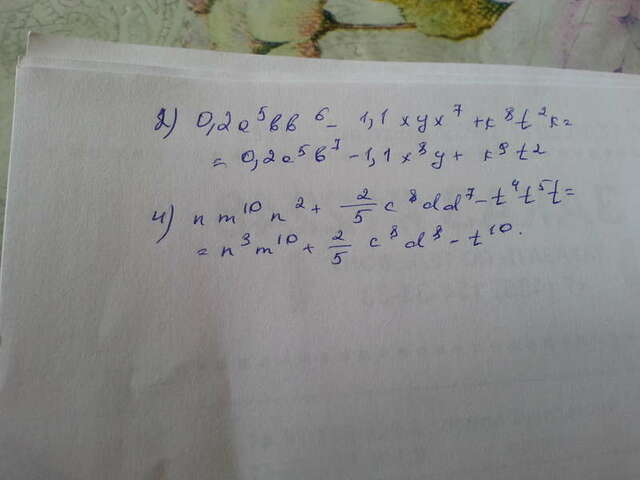 2) 0,2a⁵вв⁶ - 1,1xyx⁷ + к⁸t²к =
= 0,2a⁵в⁷ - 1,1x⁸y + к⁹t2
4) nm¹⁰n² + 2/5 c⁸dd⁷ - t⁴t⁵t =
= n³m¹⁰ + 2/5 c⁸d⁸ - t¹⁰.